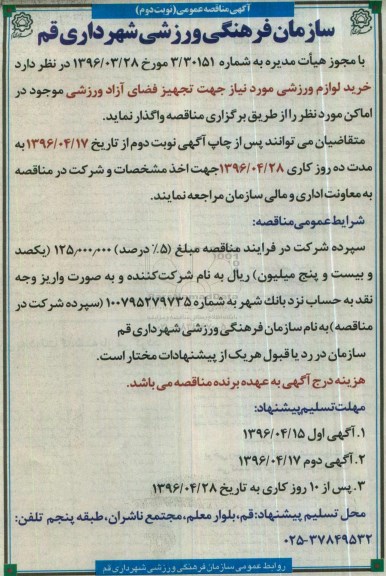 آگهی مناقصه عمومی (نوبت دوم)
سازمان فرهنگی ورزشی شهرداری قم
با مجوز هیأت مدیره به شماره ۳/۳۰۱۵۱ مورخ ۱۳۹۶/۰۳/۲۸ در نظر دارد
خرید لوازم ورزشی مورد نیاز جهت تجهیز فضای آزاد ورزشی موجود در
اماکن مورد نظر را از طریق برگزاری مناقصه واگذار نماید.
متقاضیان می توانند پس از چاپ آگهی نوبت دوم از تاریخ ۱۳۹۶/۰۴/۱۷ به
مدت ده روز کاری ۱۳۹۶/۰۴/۲۸ جهت اخذ مشخصات و شرکت در مناقصه
به معاونت اداری و مالی سازمان مراجعه نمایند.
شرایط عمومی مناقصه:
سپرده شرکت در فرایند مناقصه مبلغ (۵٪ درصد) ۱۲۵,۰۰۰,۰۰۰ (یکصد
و بیست و پنج میلیون) ریال به نام شرکت‌کننده و به صورت واریز وجه
نقد به حساب نزد بانک شهر به شماره ۱۰۰۷۹۵۲۷۹۷۳۵ (سپرده شرکت در
مناقصه) به نام سازمان فرهنگی ورزشی شهرداری قم
سازمان در رد یا قبول هریک از پیشنهادات مختار است.
هزینه درج آگهی به عهده برنده مناقصه می باشد.
مهلت تسلیم پیشنهاد:
۱. آگهی اول ۱۳۹۶/۰۴/۱۵
۲. آگهی دوم ۱۳۹۶/۰۴/۱۷
۳. پس از ۱۰ روز کاری به تاریخ ۱۳۹۶/۰۴/۲۸
محل تسلیم پیشنهاد: قم، بلوار معلم، مجتمع ناشران، طبقه پنجم تلفن:
۰۲۵-۳۷۸۴۹۵۳۲
روابط عمومی سازمان فرهنگی ورزشی شهرداری قم